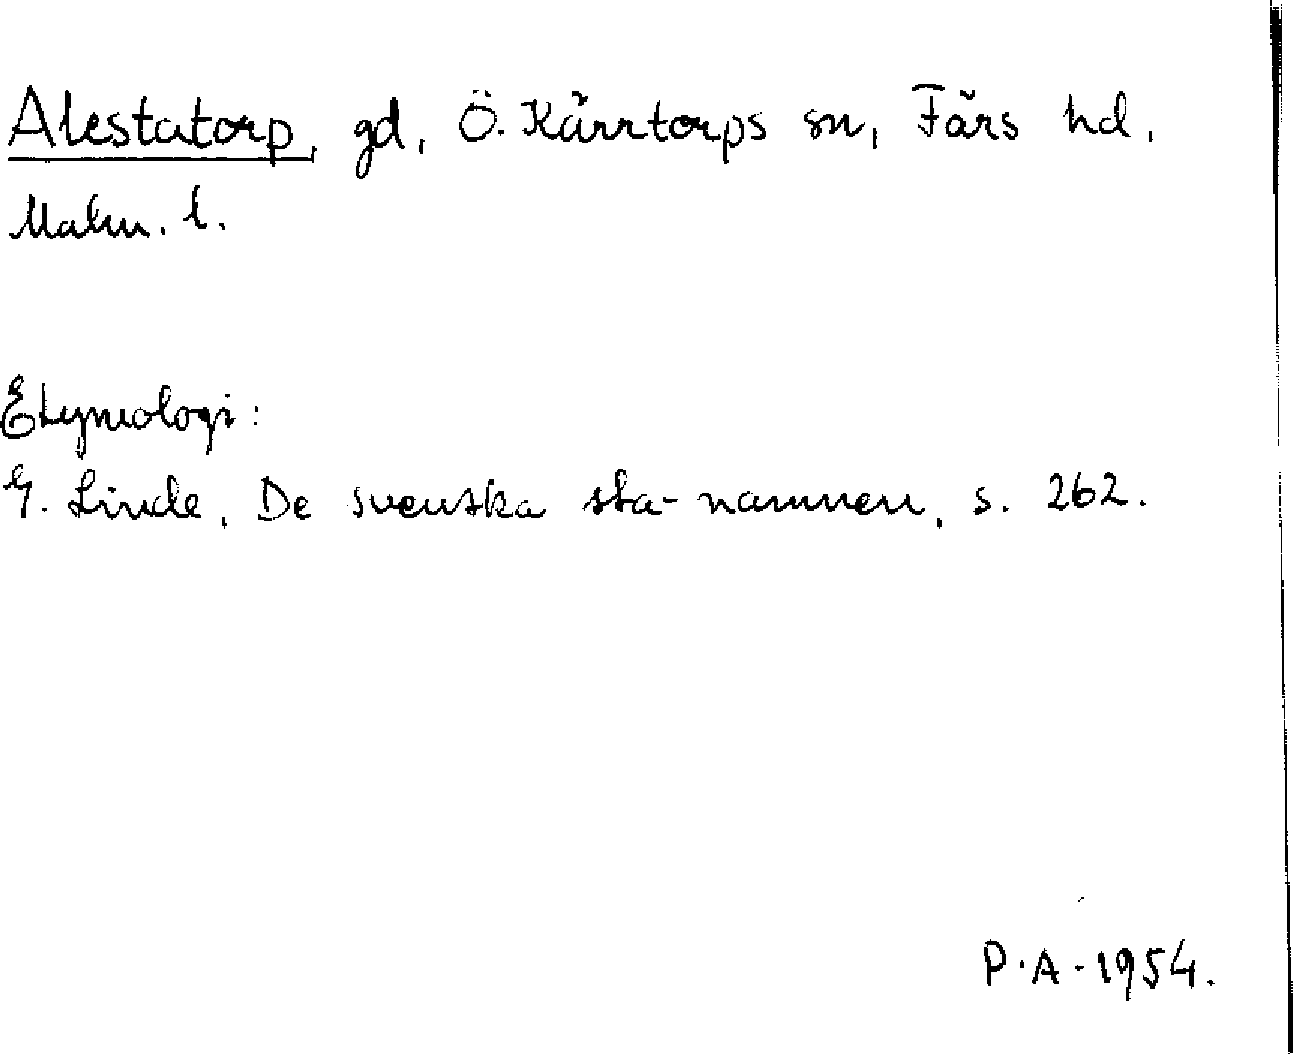 Alestatorp, gd, Ö. Kärrtorps sn, Färs hd,
Malm. l.
Etymologi:
G. Linde, De svenska sta-namnen, s. 262.
P.A. 1954.